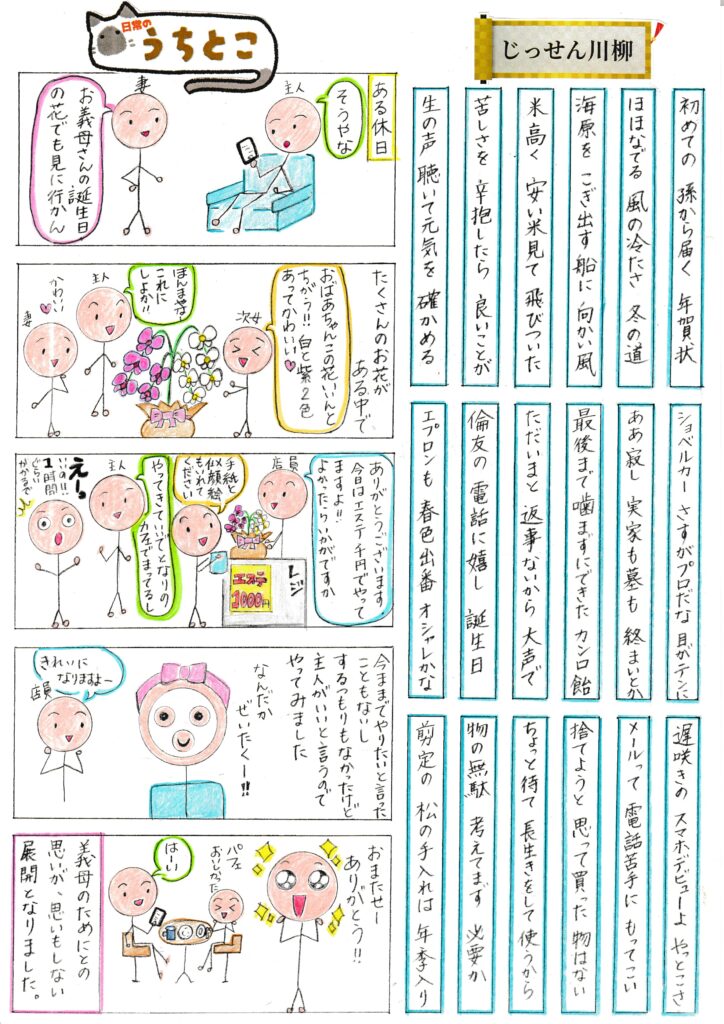 じっせん川柳
初めての 孫から届く 年賀状
ほほなでる 風の冷たさ 冬の道
海原を こぎ出す船に 向かい風
米高く 安い米見て 飛びついた
苦しさを 辛抱したら 良いことが
生の声 聴いて元気を 確かめる
ショベルカー さすがプロだな 目がテンに
ああ寂し 実家も墓も 終まいとか
最後まで 噛まずにできた カンロ飴
ただいまと 返事ないから 大声で
倫友の 電話に嬉し 誕生日
エプロンも 春色出番 オシャレかな
遅咲きの スマホデビューよ やっとこさ
メールって 電話苦手に もってこい
捨てようと 思って買った 物はない
ちょっと待て 長生きをして 使うから
物の無駄 考えてます 必要か
剪定の 松の手入れは 年季入り
日常の
うちとこ
ある休日
主人
そうやな
妻
お義母さんの誕生日
の花でも見に行かん
たくさんのお花が
ある中で、
おばあちゃんこの花いいんと
ちがう!!白と紫2色
あってかわいい♥
次女
ほんまやな
これに
しよか!!
主人
かわいい♥
妻
ありがとうございます
今日はエステ千円でやって
ますよ!!
よかったらいかがですか
店員
手紙と
似顔絵
もいれて
ください
レジ
エステ
1000円
やってきていいでとなりの
カフェでまってるし
主人
えーっ
いいの!!
1時間
ぐらい
かかるで
今までやりたいと言った
こともないし
するつもりもなかったけど
主人がいいと言うので
やってみました
なんだか
ぜいたくー!!
きれいに
なりますよー
店員
おまたせー
ありがとう!!
パフェ
おいしかった
はーい
義母のためにとの
思いが、思いもしない
展開となりました。